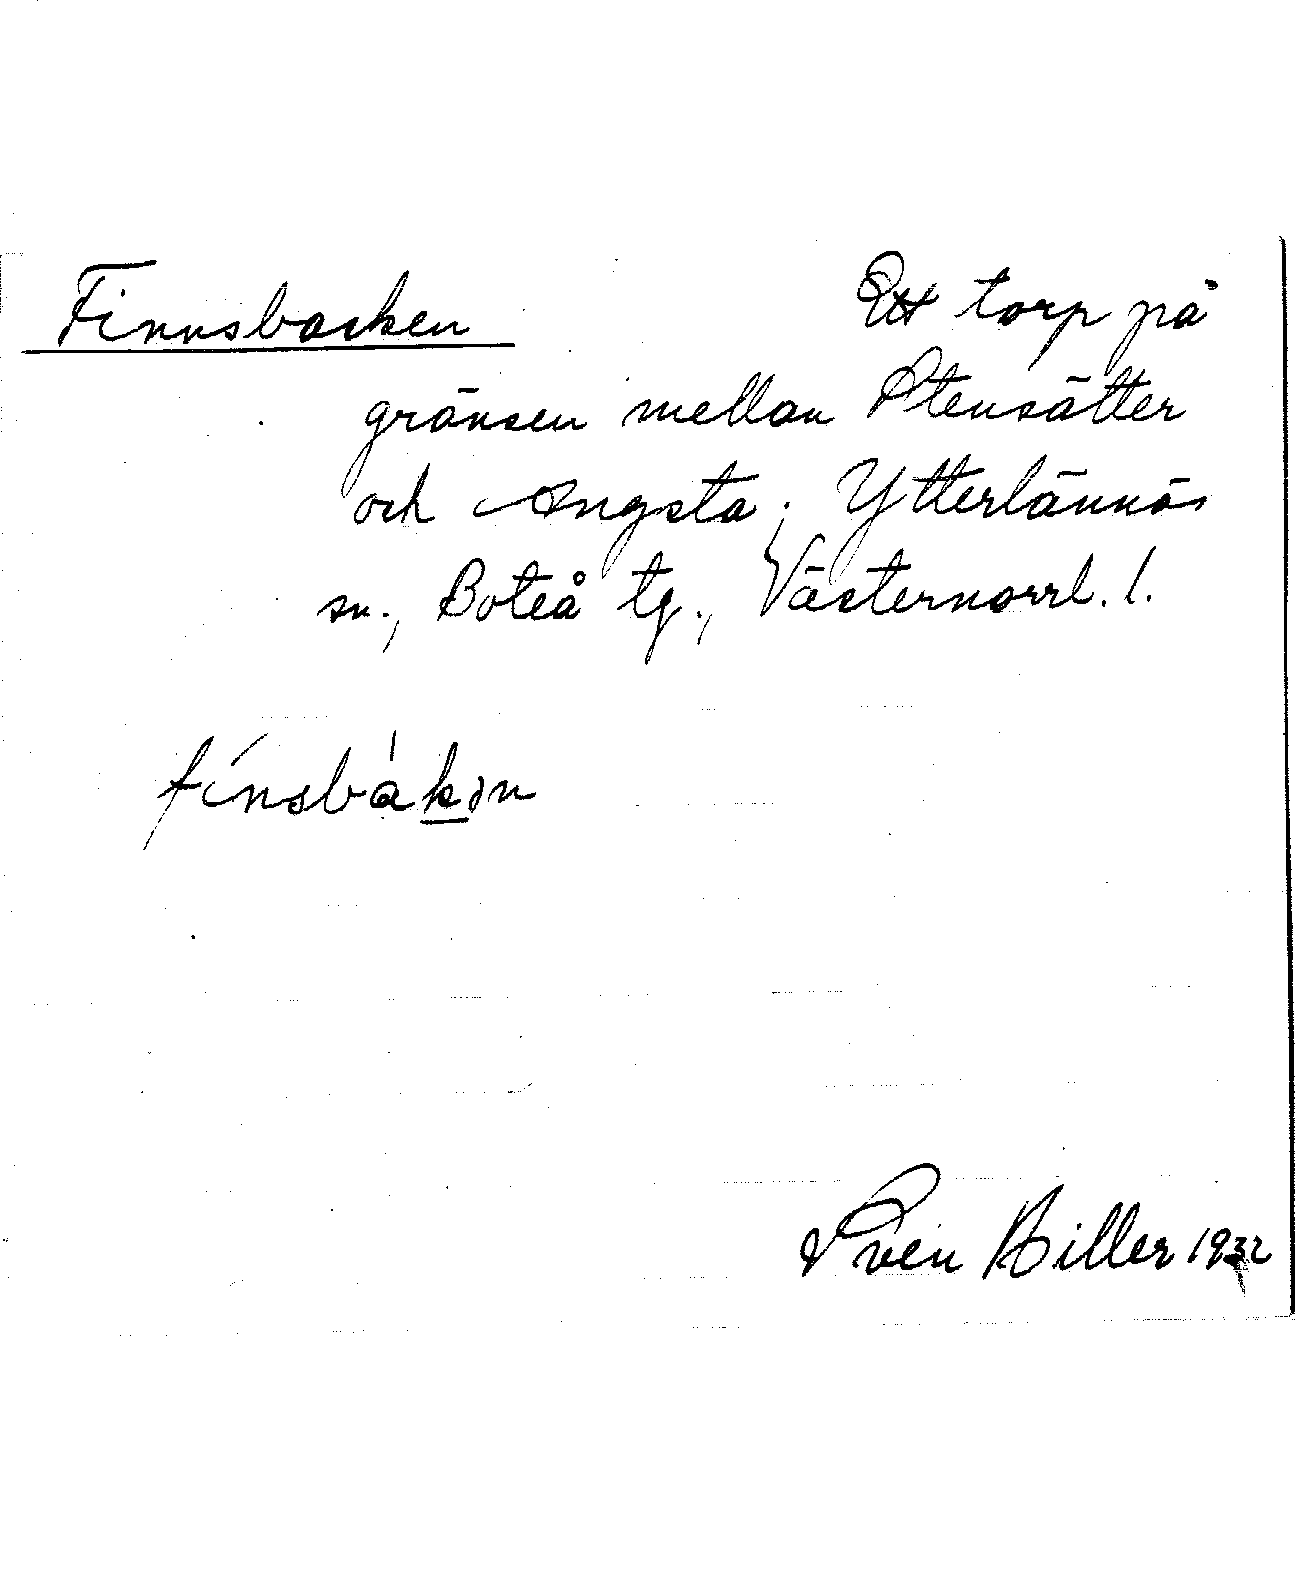 Finnsbacken Ett torp på
gränsen mellan Stensätter
och Angsta; Ytterlännäs
sn., Boteå tg., Västernorrl. l.
fínsbàkən
Sven Hiller 1932